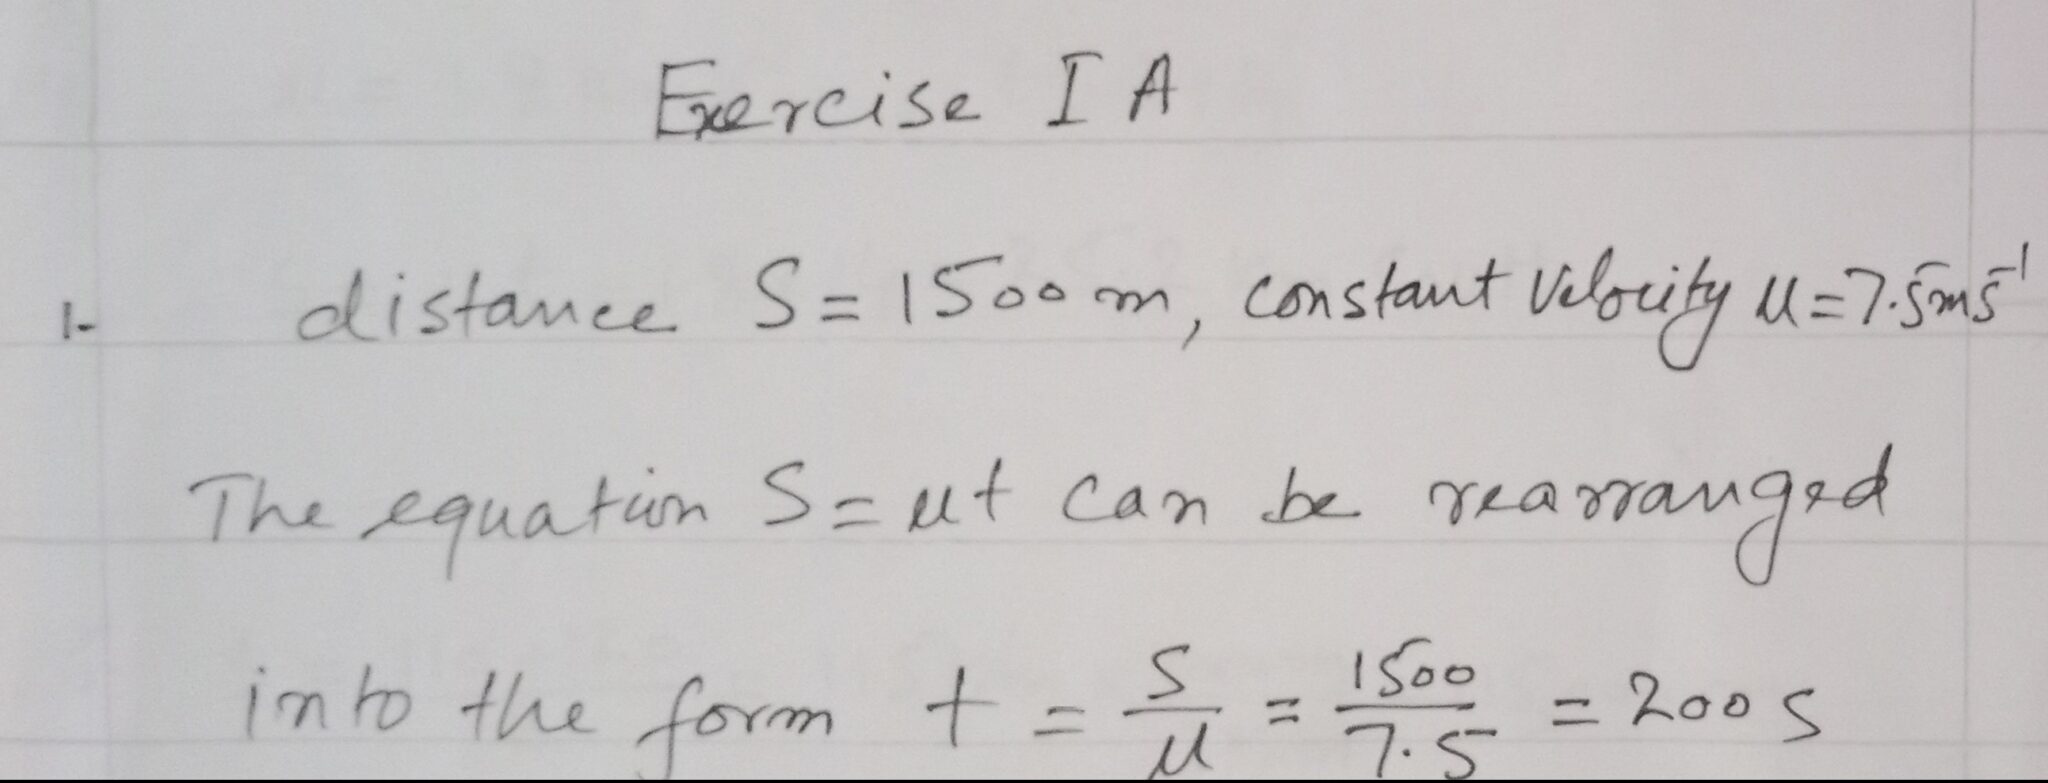 Exercise I A
1- distance S = 1500 m, constant velocity u = 7.5 ms⁻¹
The equation S = ut can be rearranged
into the form t = S/u = 1500/7.5 = 200 s